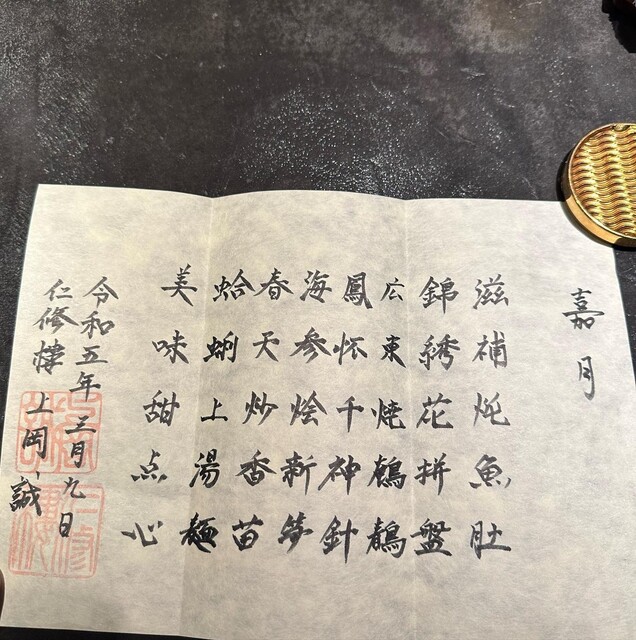 嘉月
滋補炖魚肚
錦綉花拼盤
広東焼鵪鶉
鳳怀千神針
海参烩新笋
春天炒香苗
蛤蜊上湯麺
美味甜点心
令和五年三月九日
仁修樓 上岡、誠